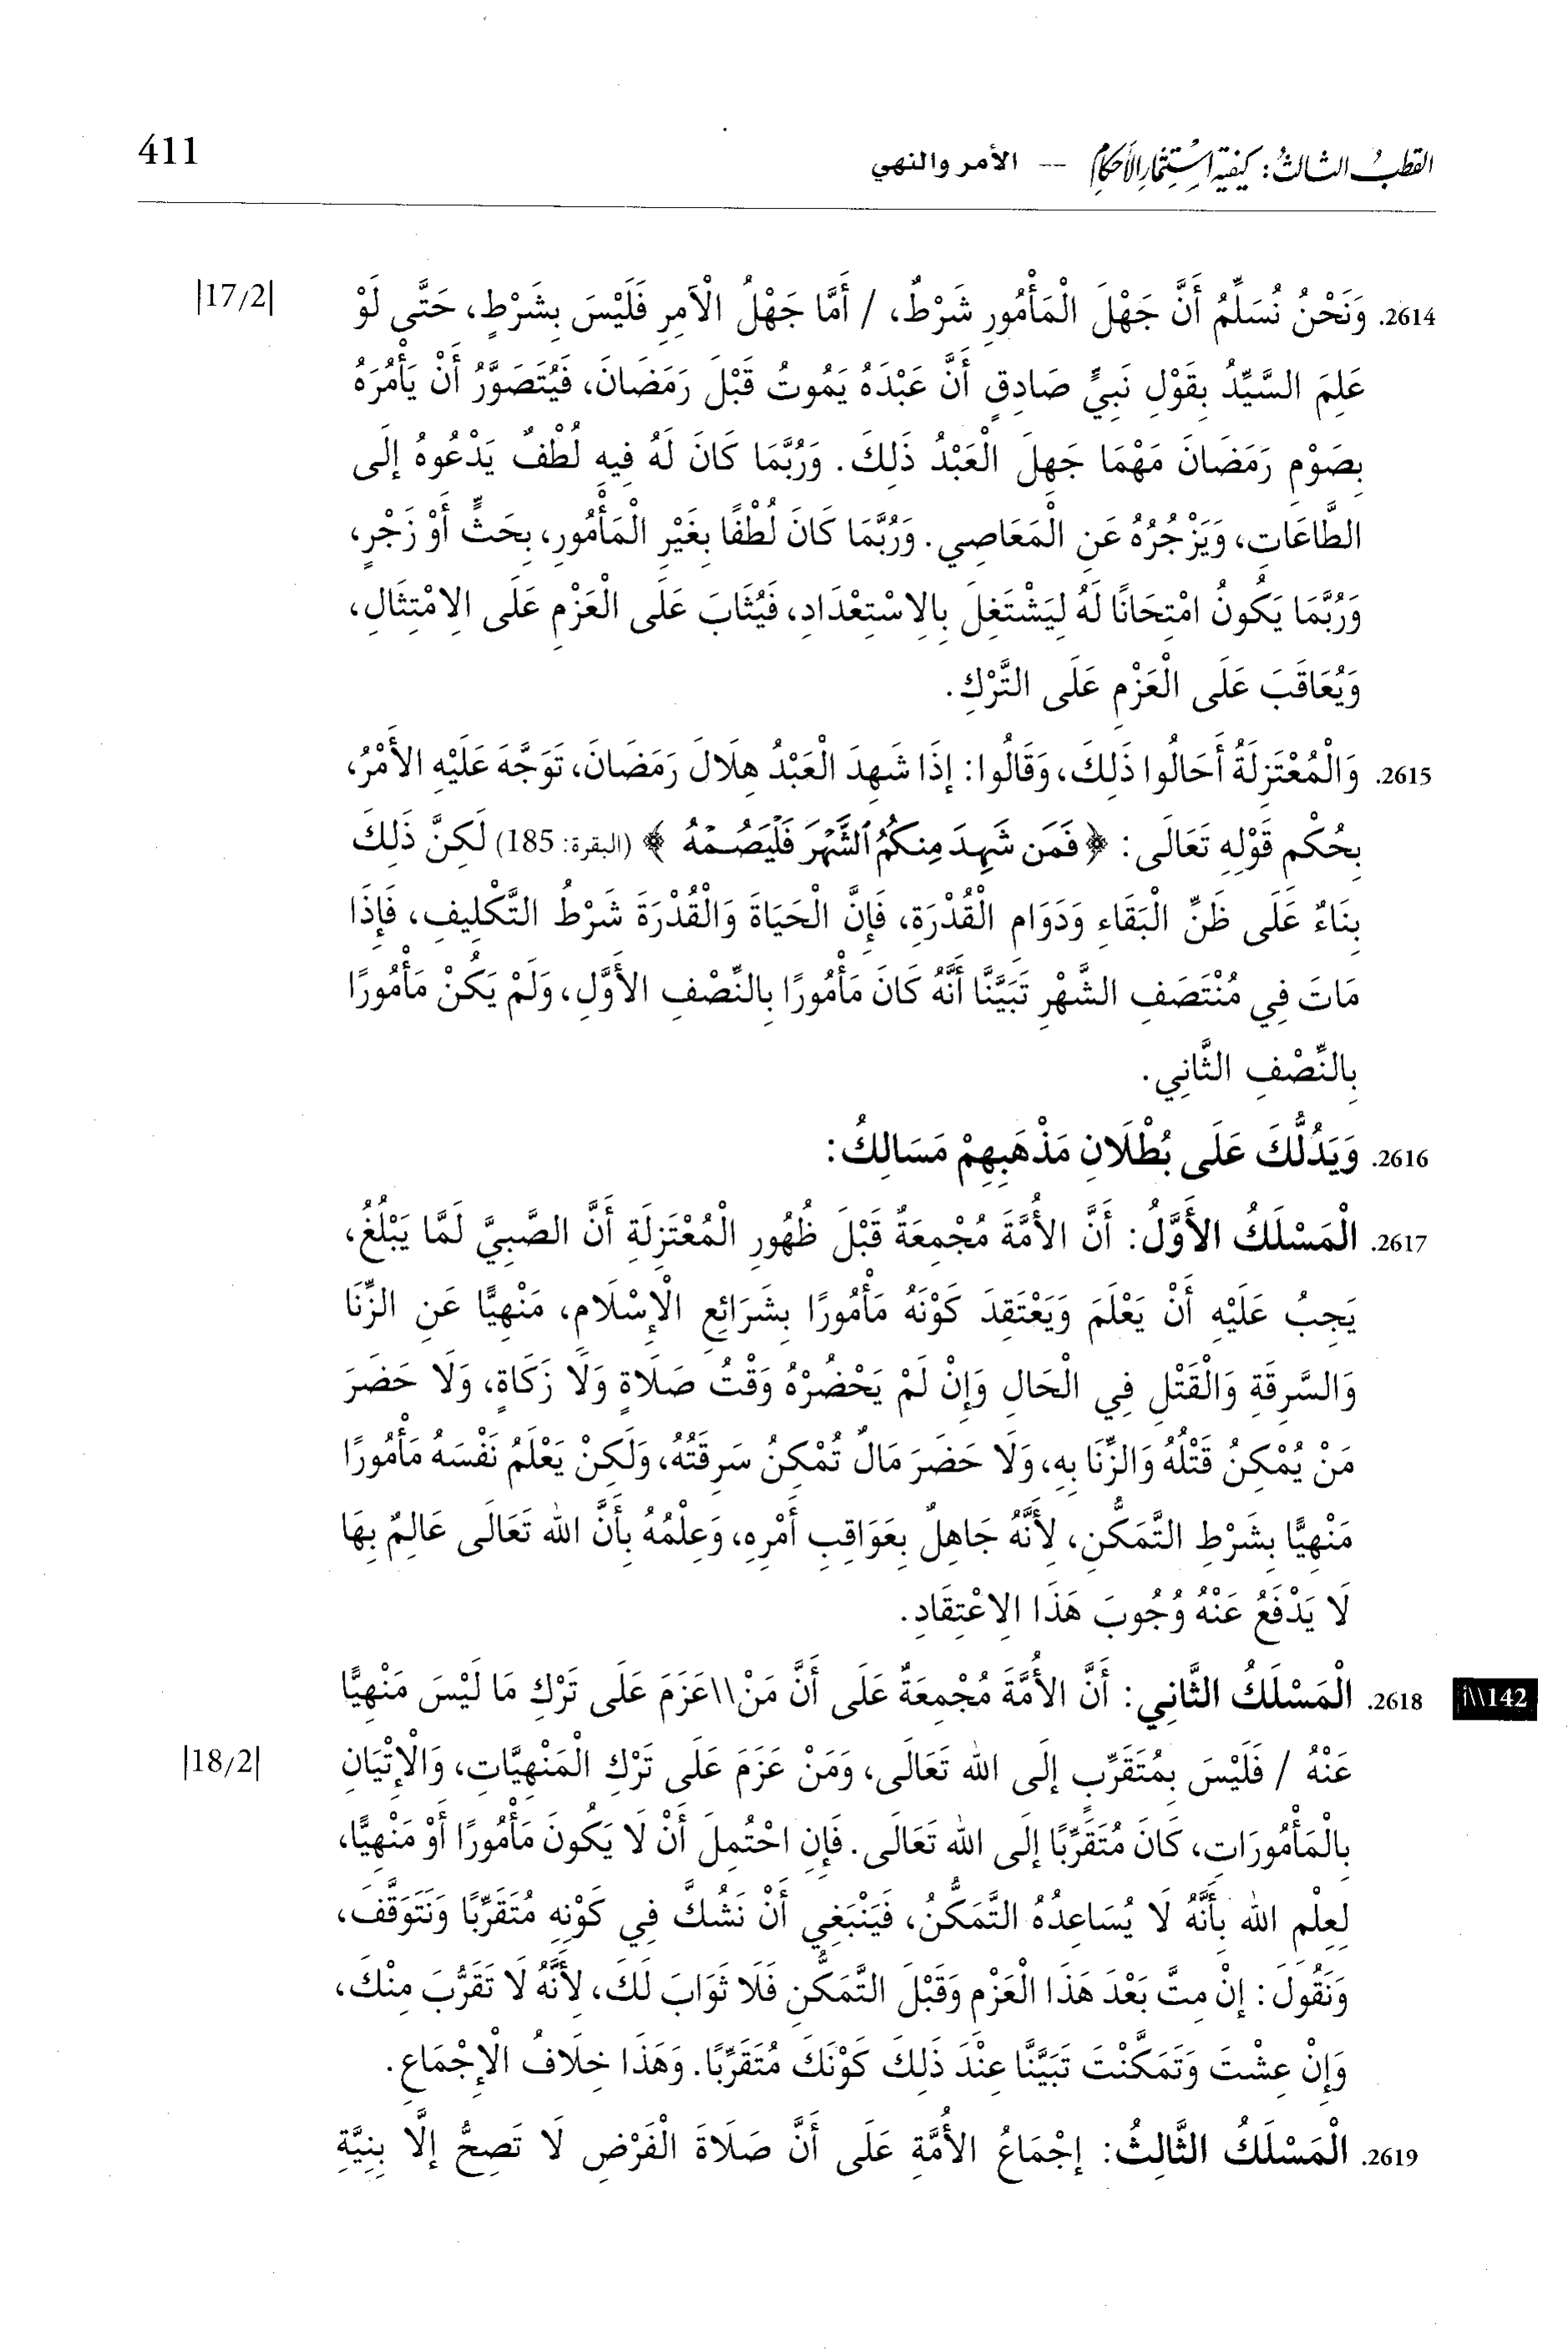 القطب الثالث: كيفية استثمار الأحكام -- الأمر والنهي 411
2614. وَنَحْنُ نُسَلِّمُ أَنَّ جَهْلَ الْمَأْمُورِ شَرْطٌ، / أَمَّا جَهْلُ الْآمِرِ فَلَيْسَ بِشَرْطٍ، حَتَّى لَوْ |17/2|
عَلِمَ السَّيِّدُ بِقَوْلِ نَبِيٍّ صَادِقٍ أَنَّ عَبْدَهُ يَمُوتُ قَبْلَ رَمَضَانَ، فَيُتَصَوَّرُ أَنْ يَأْمُرَهُ
بِصَوْمِ رَمَضَانَ مَهْمَا جَهِلَ الْعَبْدُ ذَلِكَ. وَرُبَّمَا كَانَ لَهُ فِيهِ لُطْفٌ يَدْعُوهُ إِلَى
الطَّاعَاتِ، وَيَزْجُرُهُ عَنِ الْمَعَاصِي. وَرُبَّمَا كَانَ لُطْفًا بِغَيْرِ الْمَأْمُورِ، بِحَثٍّ أَوْ زَجْرٍ،
وَرُبَّمَا يَكُونُ امْتِحَانًا لَهُ لِيَشْتَغِلَ بِالِاسْتِعْدَادِ، فَيُثَابَ عَلَى الْعَزْمِ عَلَى الِامْتِثَالِ،
وَيُعَاقَبَ عَلَى الْعَزْمِ عَلَى التَّرْكِ.
2615. وَالْمُعْتَزِلَةُ أَحَالُوا ذَلِكَ، وَقَالُوا: إِذَا شَهِدَ الْعَبْدُ هِلَالَ رَمَضَانَ، تَوَجَّهَ عَلَيْهِ الأَمْرُ،
بِحُكْمِ قَوْلِهِ تَعَالَى: ﴿فَمَن شَهِدَ مِنكُمُ ٱلشَّهْرَ فَلْيَصُمْهُ﴾ (البقرة: 185) لَكِنَّ ذَلِكَ
بِنَاءٌ عَلَى ظَنِّ الْبَقَاءِ وَدَوَامِ الْقُدْرَةِ، فَإِنَّ الْحَيَاةَ وَالْقُدْرَةَ شَرْطُ التَّكْلِيفِ، فَإِذَا
مَاتَ فِي مُنْتَصَفِ الشَّهْرِ تَبَيَّنَّا أَنَّهُ كَانَ مَأْمُورًا بِالنِّصْفِ الأَوَّلِ، وَلَمْ يَكُنْ مَأْمُورًا
بِالنِّصْفِ الثَّانِي.
2616. وَيَدُلُّكَ عَلَى بُطْلَانِ مَذْهَبِهِمْ مَسَالِكُ:
2617. الْمَسْلَكُ الأَوَّلُ: أَنَّ الأُمَّةَ مُجْمِعَةٌ قَبْلَ ظُهُورِ الْمُعْتَزِلَةِ أَنَّ الصَّبِيَّ لَمَّا يَبْلُغُ،
يَجِبُ عَلَيْهِ أَنْ يَعْلَمَ وَيَعْتَقِدَ كَوْنَهُ مَأْمُورًا بِشَرَائِعِ الْإِسْلَامِ، مَنْهِيًّا عَنِ الزِّنَا
وَالسَّرِقَةِ وَالْقَتْلِ فِي الْحَالِ وَإِنْ لَمْ يَحْضُرْهُ وَقْتُ صَلَاةٍ وَلَا زَكَاةٍ، وَلَا حَضَرَ
مَنْ يُمْكِنُ قَتْلُهُ وَالزِّنَا بِهِ، وَلَا حَضَرَ مَالٌ تُمْكِنُ سَرِقَتُهُ، وَلَكِنْ يَعْلَمُ نَفْسَهُ مَأْمُورًا
مَنْهِيًّا بِشَرْطِ التَّمَكُّنِ، لِأَنَّهُ جَاهِلٌ بِعَوَاقِبِ أَمْرِهِ، وَعِلْمُهُ بِأَنَّ اللهَ تَعَالَى عَالِمٌ بِهَا
لَا يَدْفَعُ عَنْهُ وُجُوبَ هَذَا الِاعْتِقَادِ.
2618. الْمَسْلَكُ الثَّانِي: أَنَّ الأُمَّةَ مُجْمِعَةٌ عَلَى أَنَّ مَنْ\\عَزَمَ عَلَى تَرْكِ مَا لَيْسَ مَنْهِيًّا 142\\أ
عَنْهُ / فَلَيْسَ بِمُتَقَرِّبٍ إِلَى اللهِ تَعَالَى، وَمَنْ عَزَمَ عَلَى تَرْكِ الْمَنْهِيَّاتِ، وَالْإِتْيَانِ |18/2|
بِالْمَأْمُورَاتِ، كَانَ مُتَقَرِّبًا إِلَى اللهِ تَعَالَى. فَإِنِ احْتُمِلَ أَنْ لَا يَكُونَ مَأْمُورًا أَوْ مَنْهِيًّا،
لِعِلْمِ اللهِ بِأَنَّهُ لَا يُسَاعِدُهُ التَّمَكُّنُ، فَيَنْبَغِي أَنْ نَشُكَّ فِي كَوْنِهِ مُتَقَرِّبًا وَنَتَوَقَّفَ،
وَنَقُولَ: إِنْ مِتَّ بَعْدَ هَذَا الْعَزْمِ وَقَبْلَ التَّمَكُّنِ فَلَا ثَوَابَ لَكَ، لِأَنَّهُ لَا تَقَرُّبَ مِنْكَ،
وَإِنْ عِشْتَ وَتَمَكَّنْتَ تَبَيَّنَّا عِنْدَ ذَلِكَ كَوْنَكَ مُتَقَرِّبًا. وَهَذَا خِلَافُ الْإِجْمَاعِ.
2619. الْمَسْلَكُ الثَّالِثُ: إِجْمَاعُ الأُمَّةِ عَلَى أَنَّ صَلَاةَ الْفَرْضِ لَا تَصِحُّ إِلَّا بِنِيَّةِ